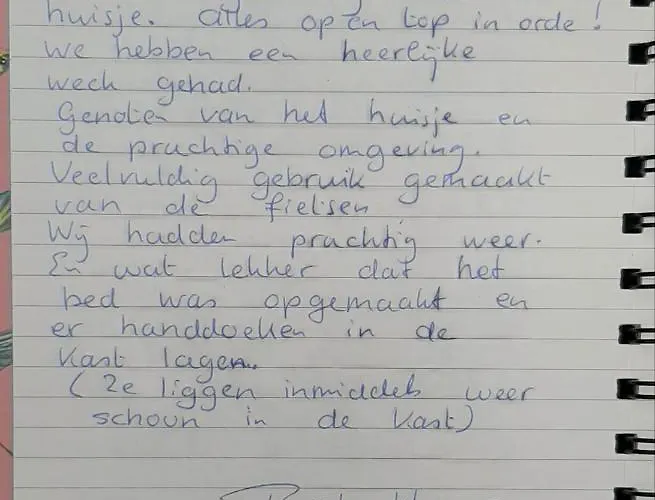 huisje. alles op en top in orde!
We hebben een heerlijke
week gehad.
Genoten van het huisje en
de prachtige omgeving.
Veelvuldig gebruik gemaakt
van de fietsen
Wij hadden prachtig weer.
En wat lekker dat het
bed was opgemaakt en
er handdoeken in de
kast lagen.
(Ze liggen inmiddels weer
schoon in de kast)